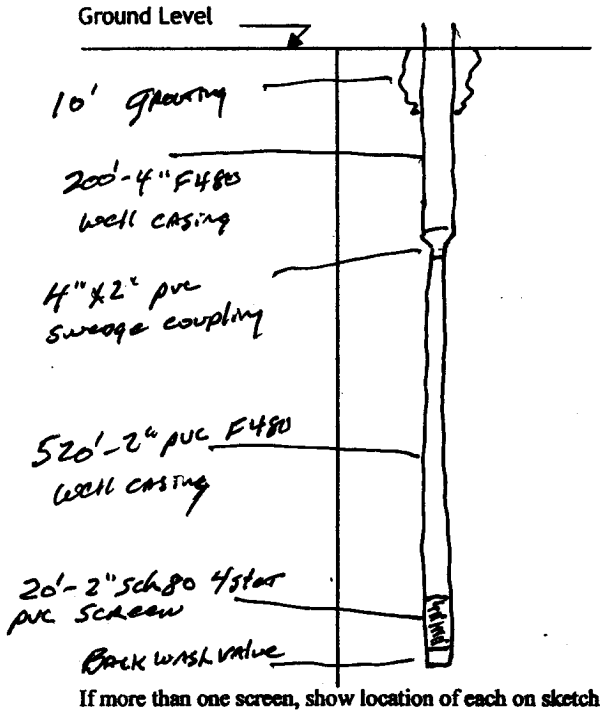 Ground Level
10' Grouting
200'-4" F480
well casing
4" x 2" pvc
swedge coupling
520'-2" pvc F480
well casing
20'-2" Sch 80 4slot
pvc screen
Back wash valve
If more than one screen, show location of each on sketch